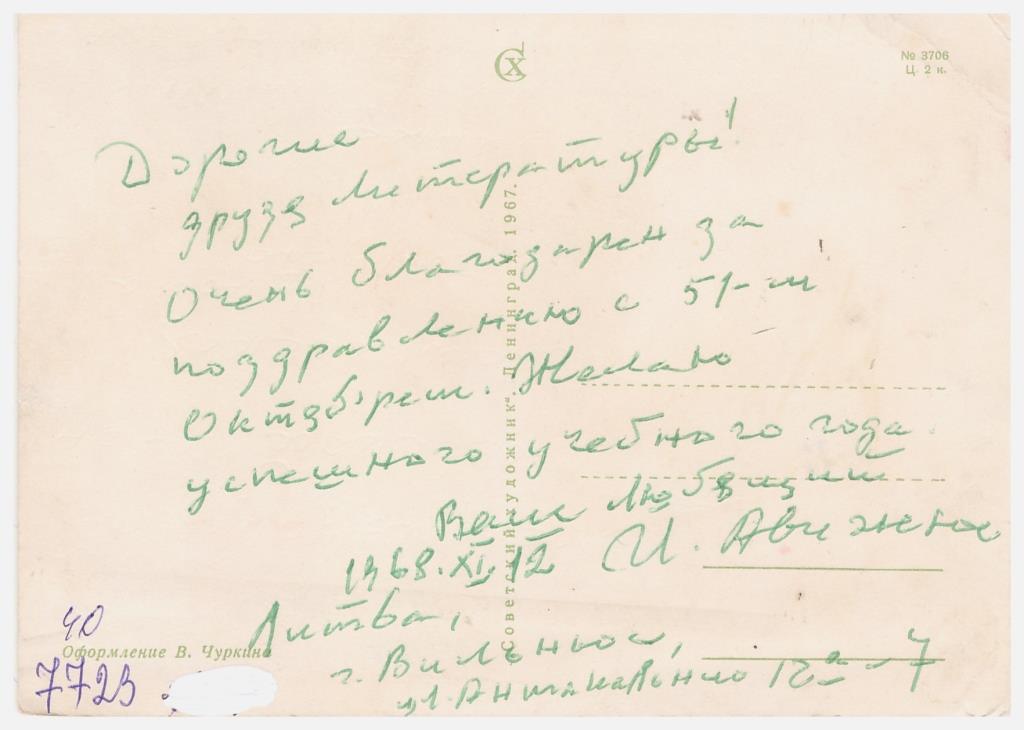 СХ
№ 3706
Ц. 2 к.
Дорогие
друзя литературы!
Очень благодарен за
поздравлению с 51-м
Октябрем. Желаю
успешного учебного года.
Ваш любящий
И. Авижюс
1968.XI.12
Литва,
г. Вильнюс,
ул. Антакальнио 12а-7
"Советский художник". Ленинград. 1967.
Оформление В. Чуркина
40
7723